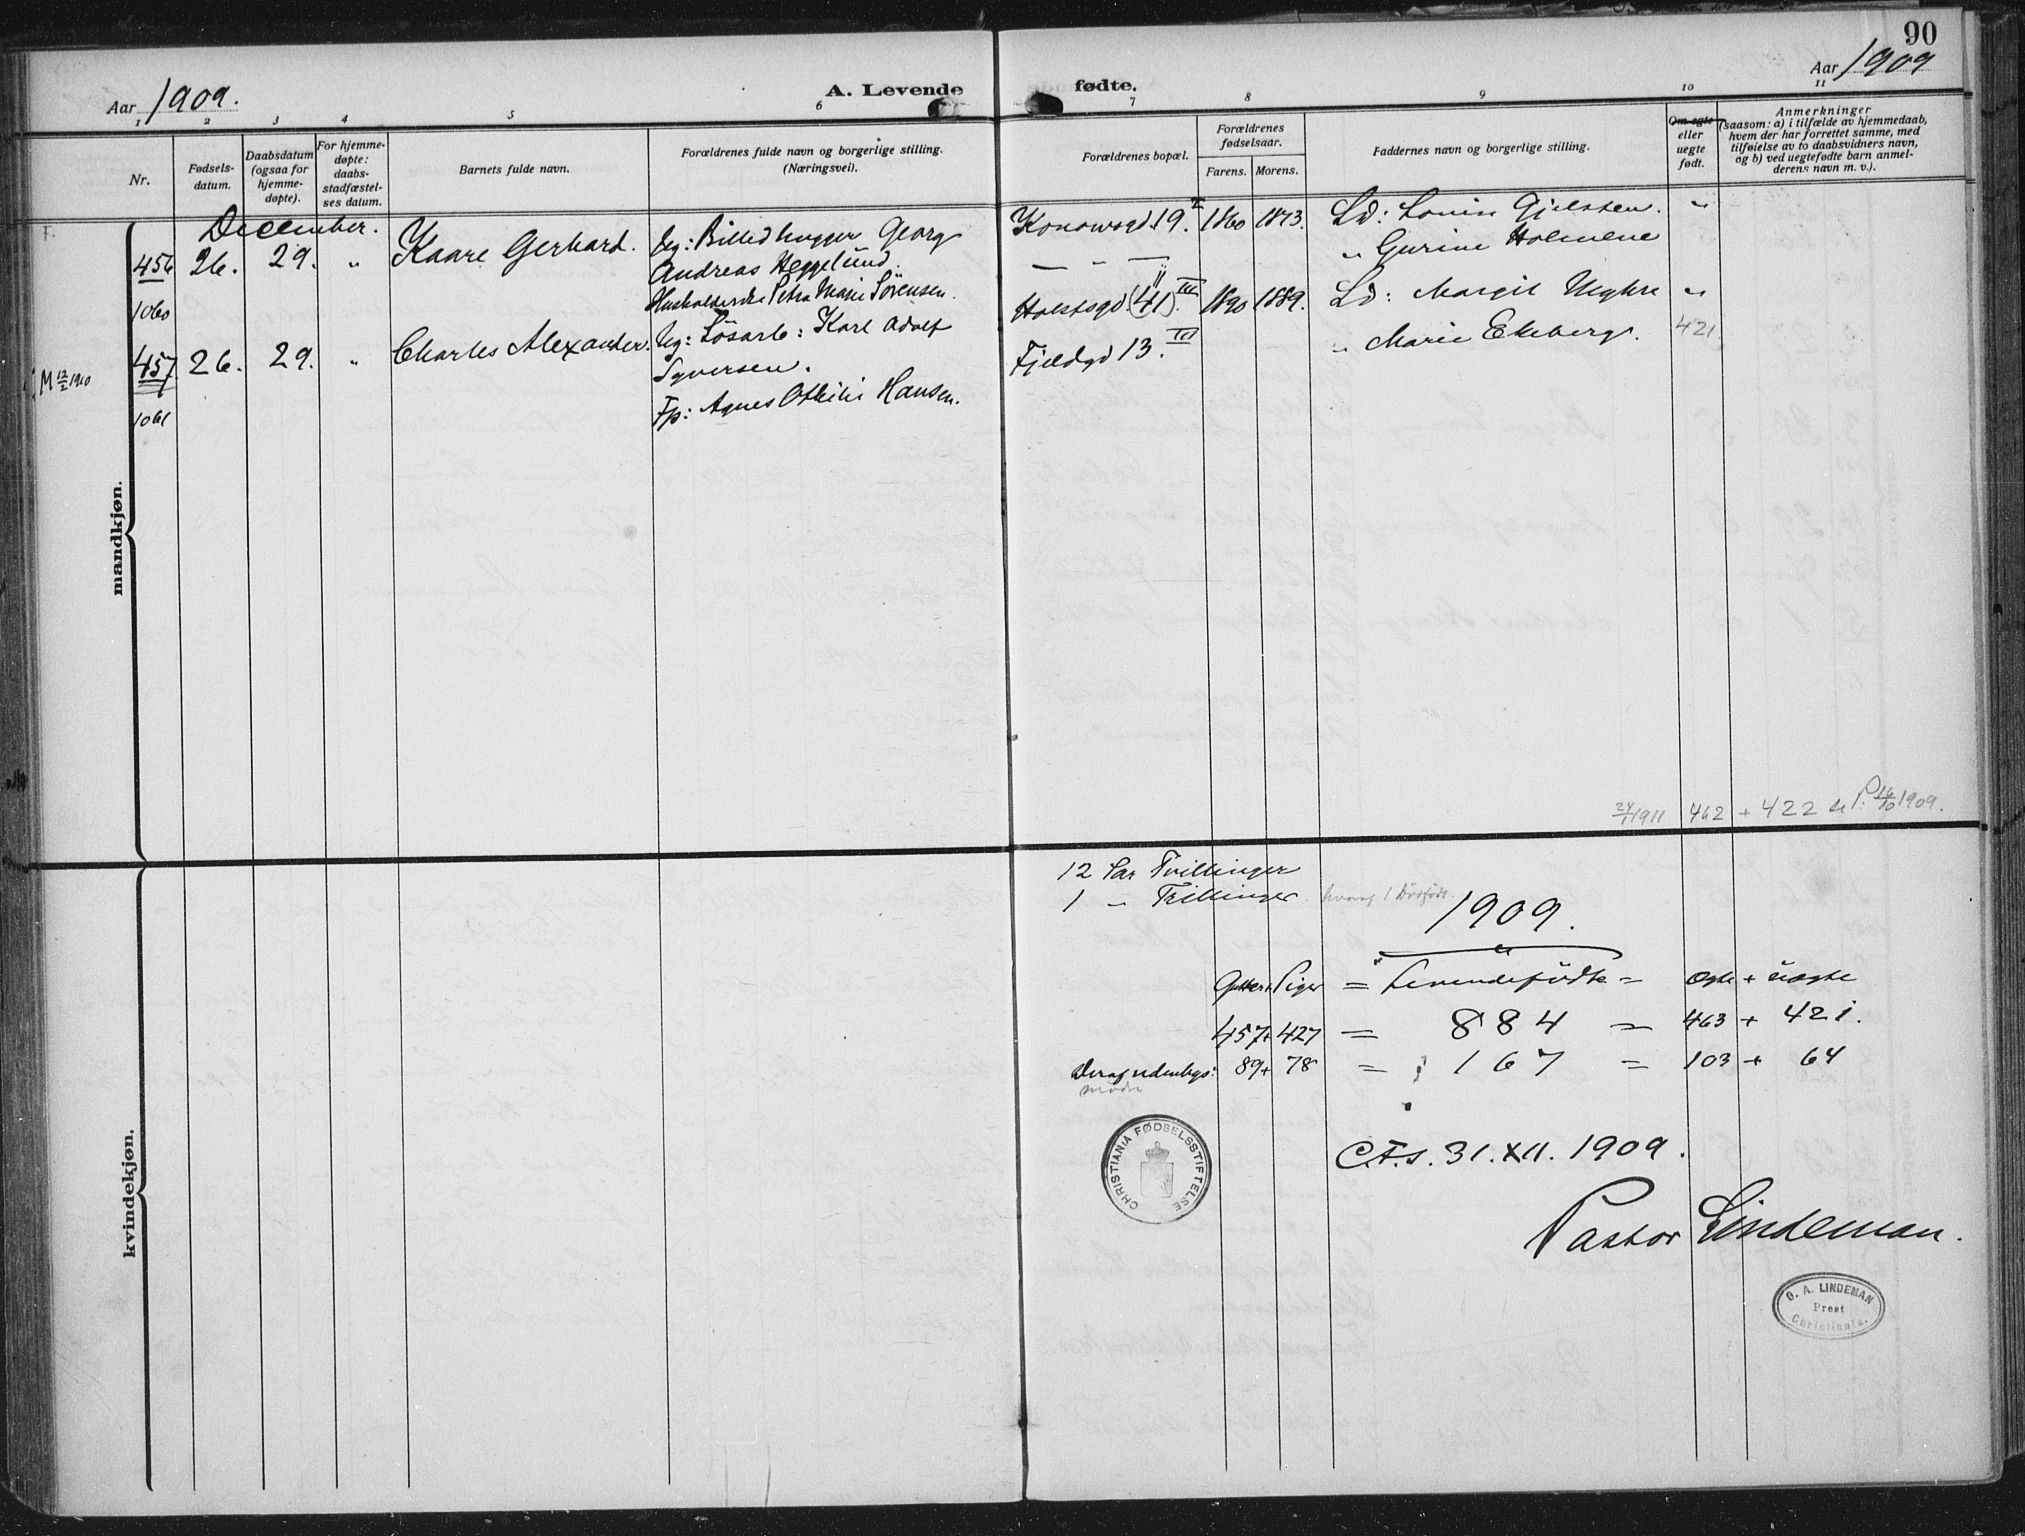 90
Aar 1909.
A. Levende fødte.
Aar 1909
1 2 3 4 5 6 7 8 9 10 11
Nr.
Fødsels-
datum.
Daabsdatum
(ogsaa for
hjemme-
døpte).
For hjemme-
døpte:
daabs-
stadfæstel-
ses datum.
Barnets fulde navn.
Forældrenes fulde navn og borgerlige stilling.
(Næringsvei).
Forældrenes bopæl.
Forældrenes
fødselsaar.
Farens. Morens.
Faddernes navn og borgerlige stilling.
Om egte
eller
uegte
født.
Anmerkninger
(saasom: a) i tilfælde av hjemmedaab,
hvem der har forrettet samme, med
tilføielse av to daabsvidners navn,
og b) ved uegtefødte barn anmel-
derens navn m. v.).
F.
December.
456 26. 29. " Kaare Gerhard.
Ug: Billedhugger Georg
Andreas Heggelund.
Husholderske Petra Marie Sörensen.
Konowsgd. 19. I 1860 1873.
Ld: Louise Gjelsten. "
" Gurine Holmene
1060
M 12/2 1910
457 26. 29. " Charles Alexander.
Ug: Lösarb: Karl Adolf
Syversen.
Fp: Agnes Othilie Hansen.
Holstsgd. (41). III 1890 1889.
Fjeldgd 13. III
Ld: Margit Meghre "
" Marie Ekeberg. 421
1061
mandkjøn.
24/1 1911 462 + 422 P: 16/10 1909.
kvindekjøn.
12 Par Tvillinger
1 " Trillinger hvoraf 1 Dödfödt.
1909.
Gutter + Piger = Levendefödte = ægte + uægte
457 + 427 = 884 = 463 + 421.
Deraf udenbys: 89 + 78 = 167 = 103 + 64
mödre
CHRISTIANIA FØDSELSSTIFTELSE
C.F.s. 31. XII. 1909.
Pastor Lindeman.
O. A. LINDEMAN
Prest
Christiania.